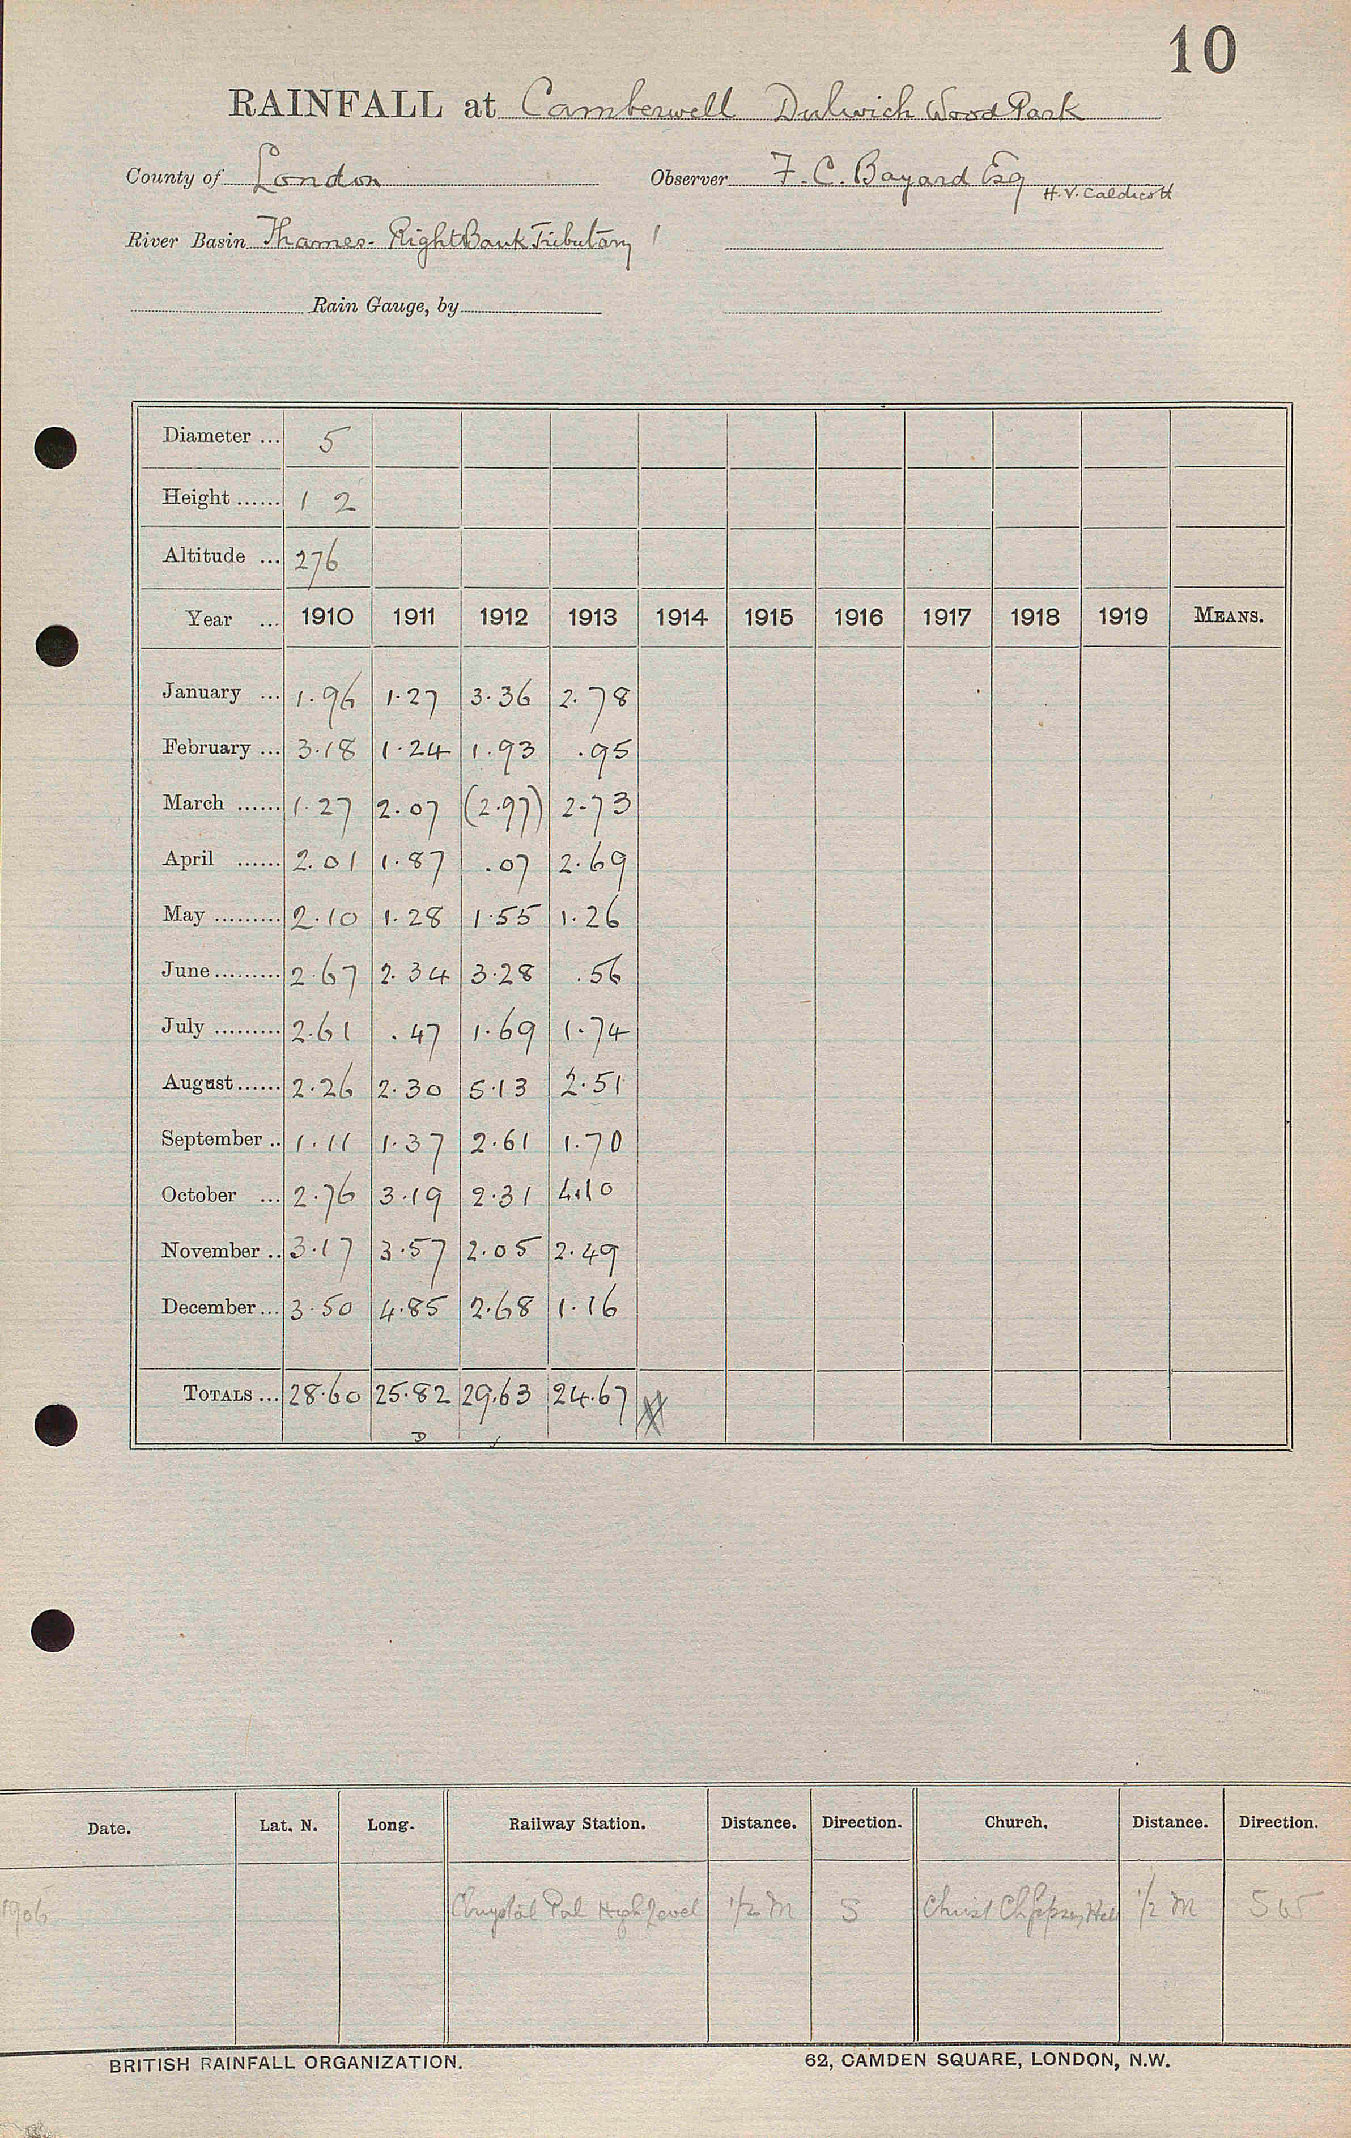 10
RAINFALL at Camberwell Dulwich Wood Park
County of London Observer F. C. Bayard Esq
H. V. Caldicott
River Basin Thames - Right Bank Tributary 1
Rain Gauge, by
Diameter ... 5
Height ...... 1 2
Altitude ... 276
Year ... 1910 1911 1912 1913 1914 1915 1916 1917 1918 1919 MEANS.
January ... 1.96 1.27 3.36 2.78
February ... 3.18 1.24 1.93 .95
March ...... 1.27 2.07 (2.97) 2.73
April ...... 2.01 1.87 .07 2.69
May ......... 2.10 1.28 1.55 1.26
June ......... 2.67 2.34 3.28 .56
July ......... 2.61 .47 1.69 1.74
August ...... 2.26 2.30 5.13 2.51
September .. 1.11 1.37 2.61 1.70
October ... 2.76 3.19 2.31 4.10
November .. 3.17 3.57 2.05 2.49
December ... 3.50 4.85 2.68 1.16
TOTALS ... 28.60 25.82 29.63 24.67
D
Date. Lat. N. Long. Railway Station. Distance. Direction. Church. Distance. Direction.
1906 Chrystal Pal High Level 1/2 M S Christ Ch 1/2 M SW
BRITISH RAINFALL ORGANIZATION. 62, CAMDEN SQUARE, LONDON, N.W.